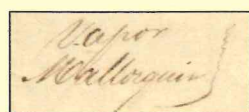 Vapor
Mallorquin